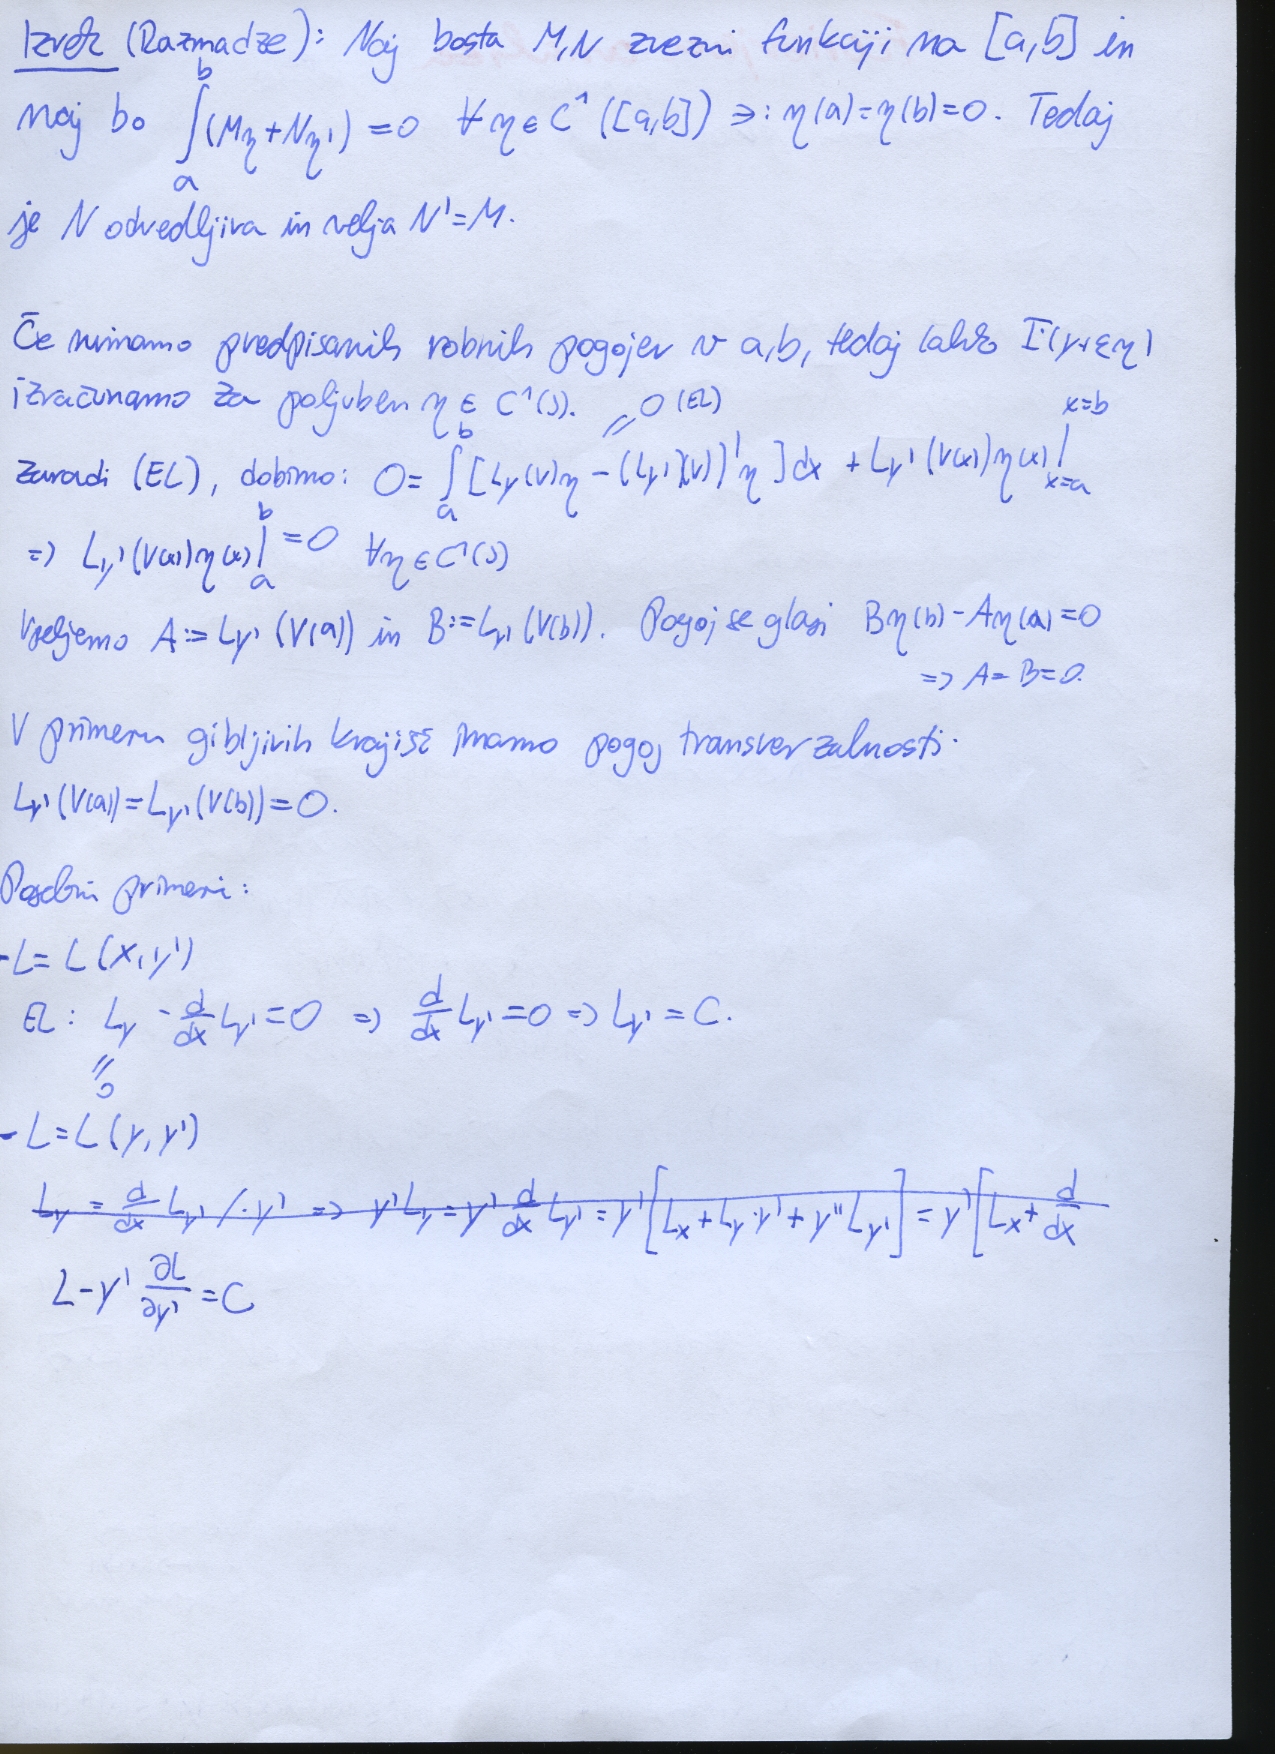 Izrek (Razmadze): Naj bosta M,N zvezni funkciji na [a,b] in
naj bo ∫_a^b (Mη+Nη') = 0 ∀η∈C¹([a,b]) ∋: η(a)=η(b)=0. Tedaj
je N odvedljiva in velja N'=M.
Če nimamo predpisanih robnih pogojev v a,b, tedaj lahko I(y+εη)
izračunamo za poljuben η∈C¹(J).
Zaradi (EL), dobimo: 0= ∫_a^b [L_y(v)η - (L_y'(v))'η] dx + L_y'(v(x))η(x)|_{x=a}^{x=b}
= 0 (EL)
=> L_y'(v(x))η(x)|_a^b = 0 ∀η∈C¹(J)
Vpeljemo A:= L_y'(v(a)) in B:= L_y'(v(b)). Pogoj se glasi Bη(b)-Aη(a)=0
=> A=B=0.
V primeru gibljivih krajišč imamo pogoj transverzalnosti.
L_y'(v(a)) = L_y'(v(b)) = 0.
Posebni primeri:
- L = L(x,y')
EL: L_y - d/dx L_y' = 0 => d/dx L_y' = 0 => L_y' = C.
= 0
- L = L(y,y')
L_y = d/dx L_y' /·y' => y'L_y = y' d/dx L_y' = y'[L_x + L_y·y' + y''L_y'] = y'[L_x + d/dx
L - y' ∂L/∂y' = C